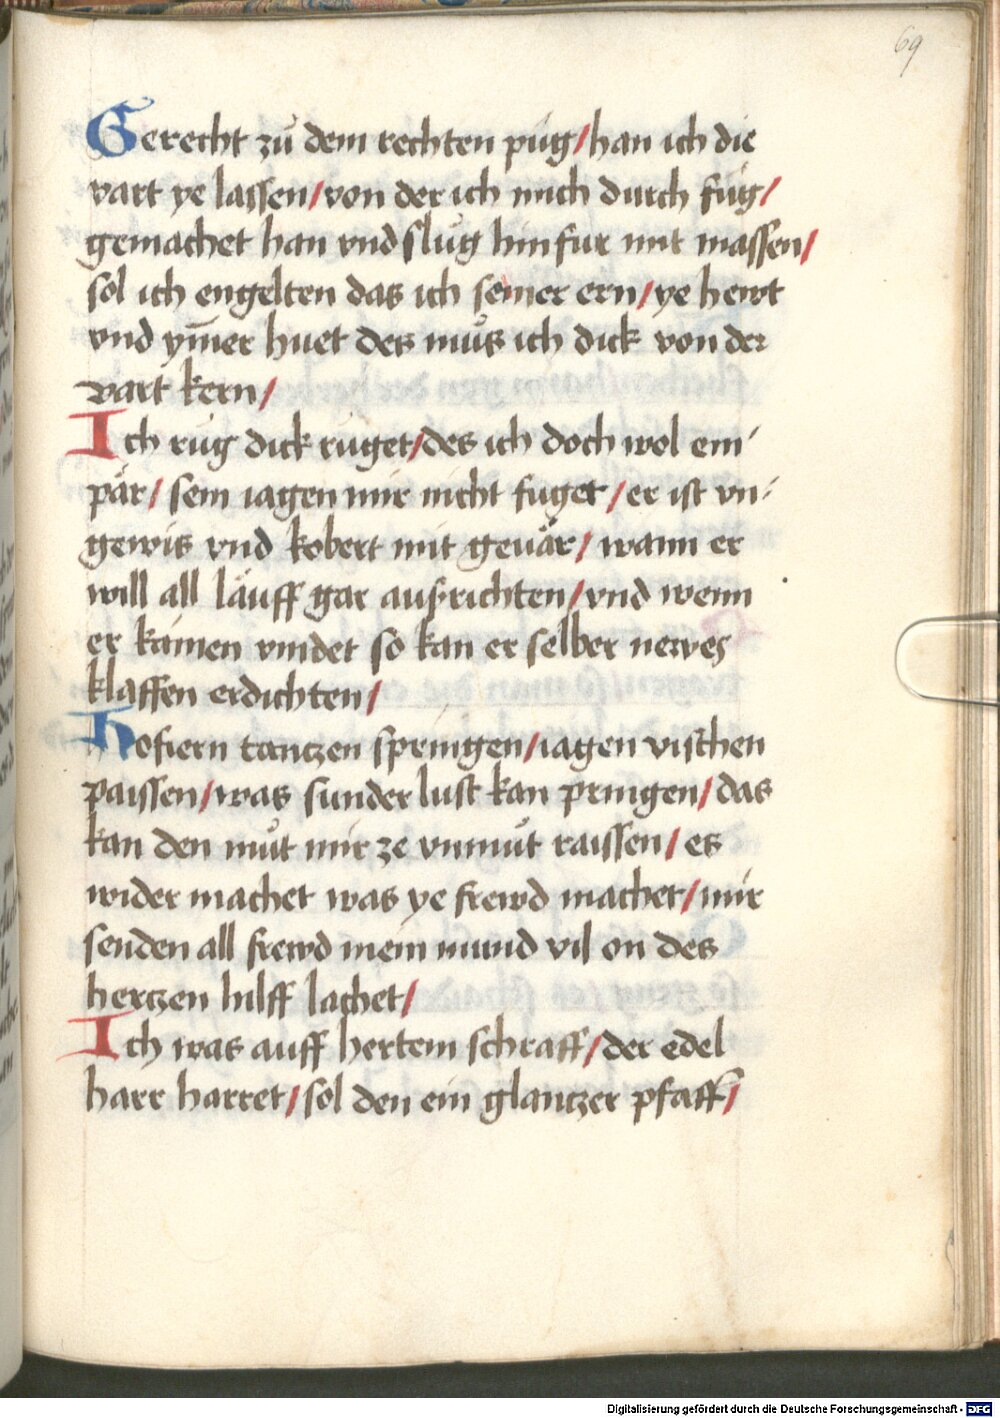 69
Gerecht zů dem rechten pug/han ich die
vart ye lassen/von der ich mich durch fug/
gemachet han vnd slug hinfur mit massen/
sol ich engelten das ich seiner ern/ye hewt
vnd ym̄er huet des můs ich dick von der
vart kern/
Ich rug dick ruget/des ich doch wol em-
pär/ sein iagen mir nicht fuget/er ist vn-
gewis vnd kobert mit geuär/ wann er
will all läuff gar ausrichten/vnd wenn
er kainen vindet so kan er selber newes
klaffen erdichten/
Hofiern tanczen springen/iagen vischen
paissen/was sunder lust kan pringen/das
kan den můt mir ze vnmůt raissen/ es
wider machet was ye frewd machet/mir
senden all frewd mein mund vil on des
herczen hilff lachet/
Ich was auff hertem schraff/der edel
harr harret/sol den ein glantzer pfaff/
Digitalisierung gefördert durch die Deutsche Forschungsgemeinschaft - DFG